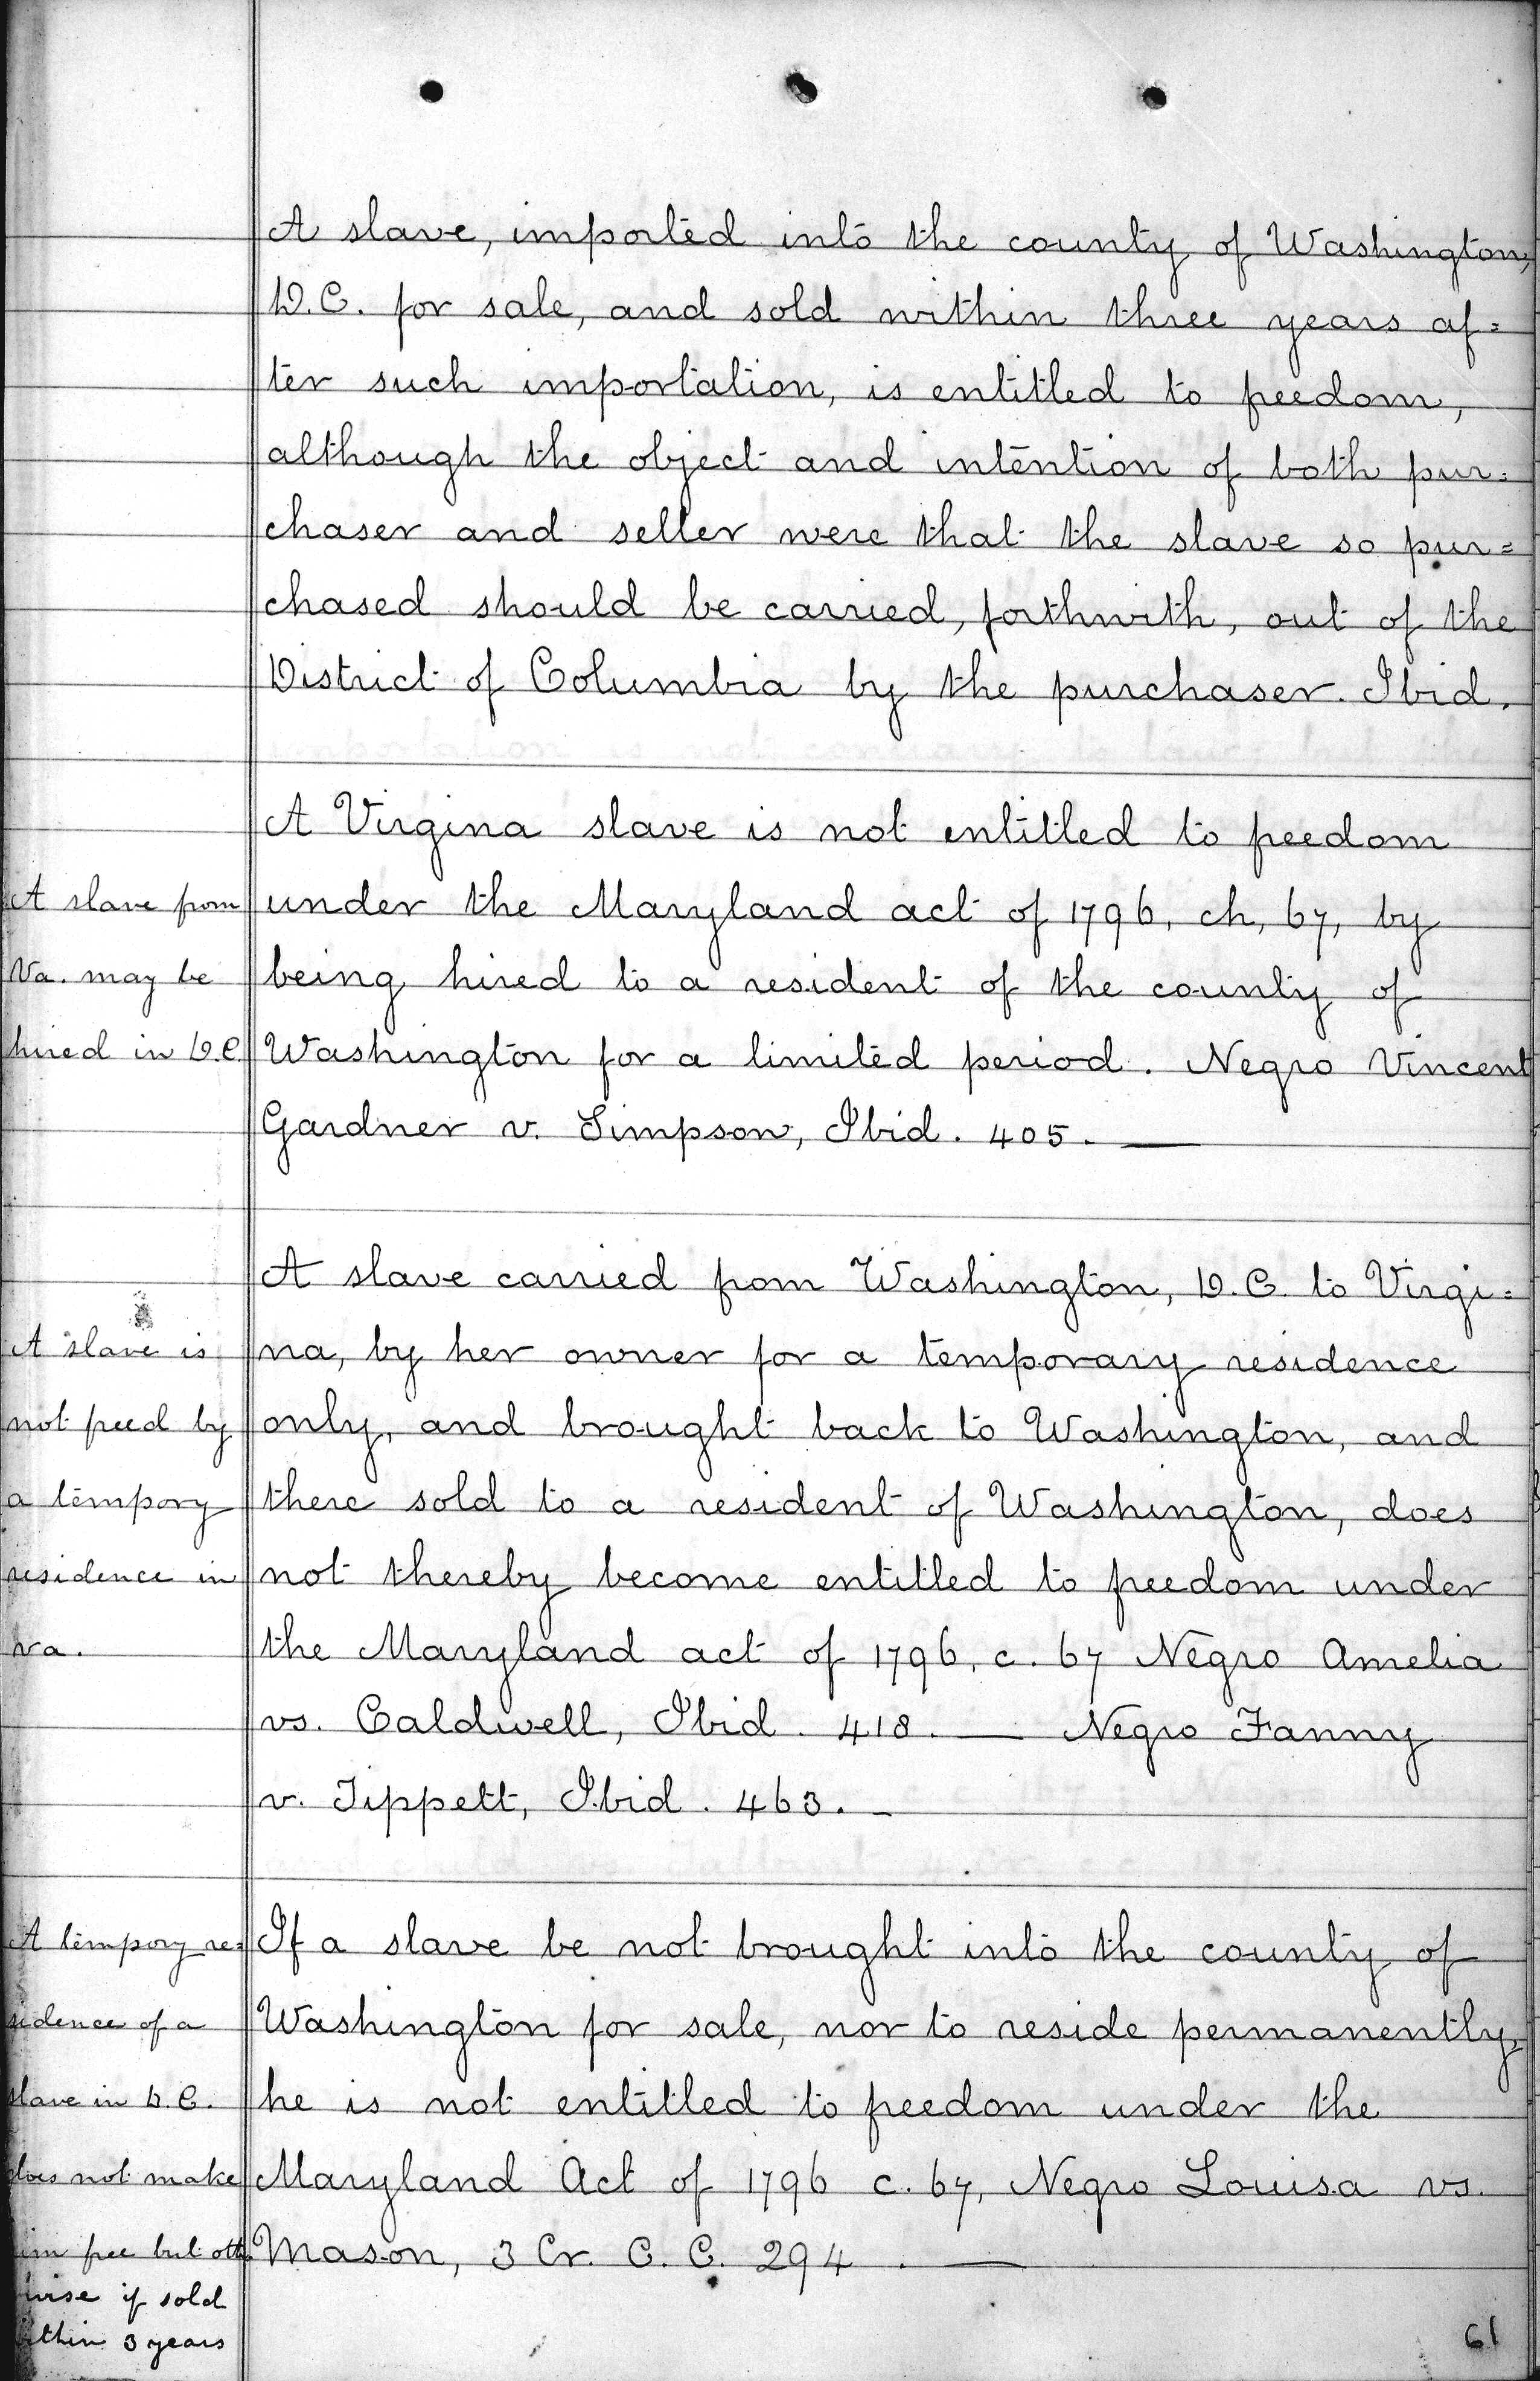 A slave, imported into the county of Washington,
D.C. for sale, and sold within three years af=
ter such importation, is entitled to freedom,
although the object and intention of both pur=
chaser and seller were that the slave so pur=
chased should be carried, forthwith, out of the
District of Columbia by the purchaser. Ibid.
A Virgina slave is not entitled to freedom
A slave from
Va. may be
hired in D.C.
under the Maryland act of 1796, ch, 67, by
being hired to a resident of the county of
Washington for a limited period. Negro Vincent
Gardner v. Simpson, Ibid. 405.
A slave carried from Washington, D.C. to Virgi=
A slave is
not freed by
a tempory
residence in
va.
na, by her owner for a temporary residence
only, and brought back to Washington, and
there sold to a resident of Washington, does
not thereby become entitled to freedom under
the Maryland act of 1796, c. 67 Negro Amelia
vs. Caldwell, Ibid. 418. — Negro Fanny
v. Tippett, Ibid. 463. -
A tempory re=
sidence of a
slave in D.C.
does not make
him free but oth
wise if sold
within 3 years
If a slave be not brought into the county of
Washington for sale, nor to reside permanently,
he is not entitled to freedom under the
Maryland Act of 1796 c. 67, Negro Louisa vs.
Mason, 3 Cr. C. C. 294. —
61